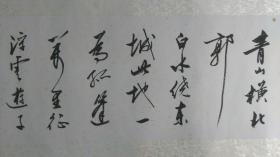 青山横北
郭
白水绕东
城此地一
为孤蓬
万里征
浮云游子